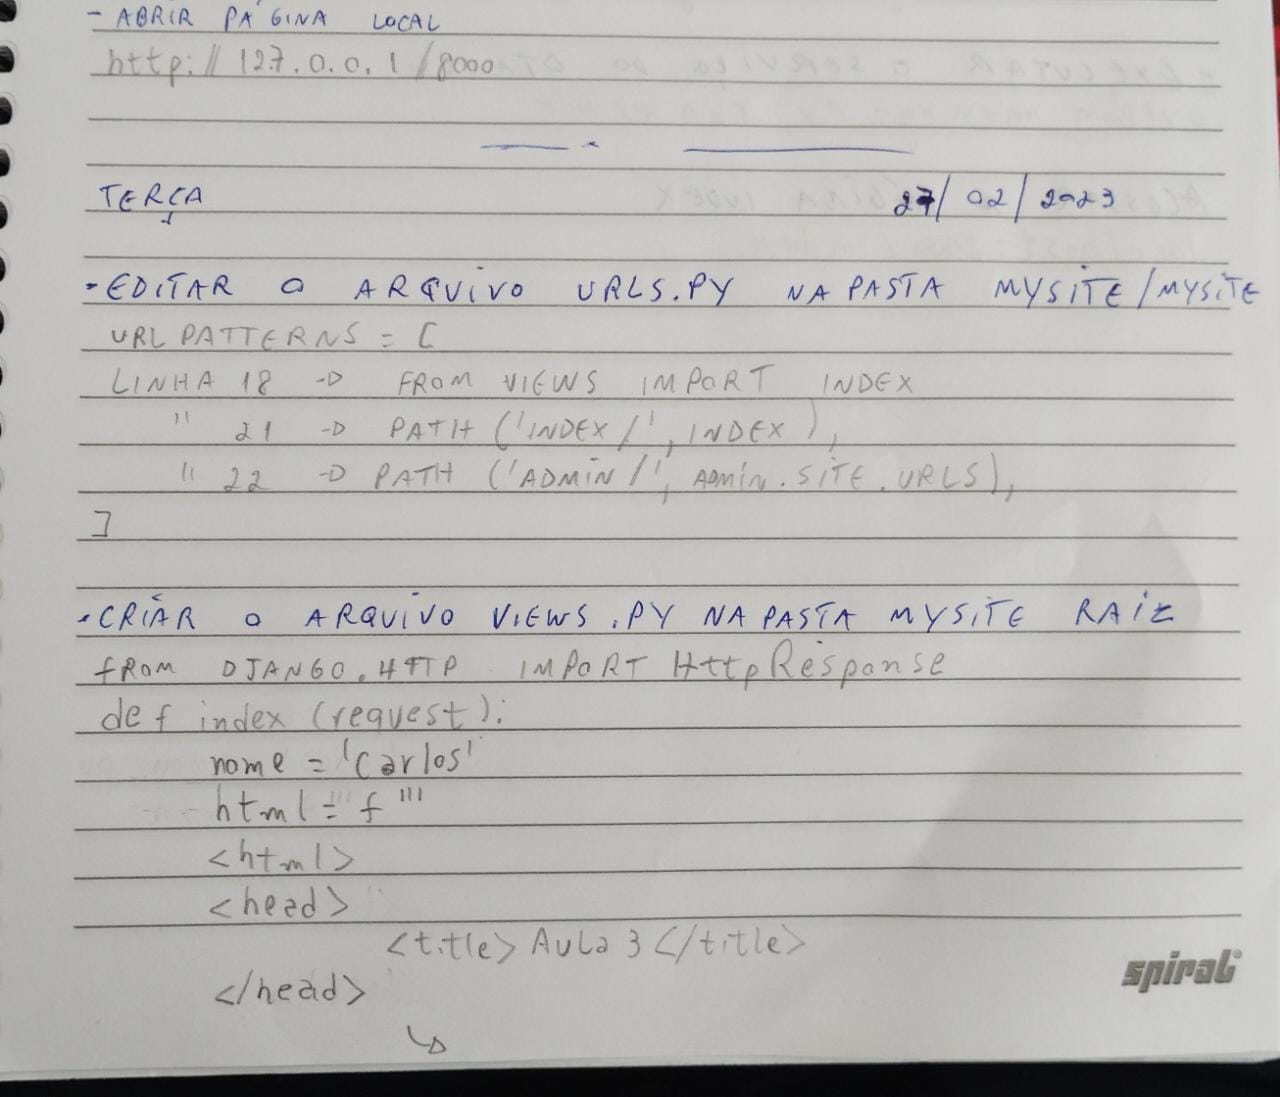 - ABRIR PÁGINA LOCAL
http://127.0.0.1/8000
TERÇA 27/02/2023
- EDITAR O ARQUIVO URLS.PY NA PASTA MYSITE/MYSITE
URLPATTERNS = [
LINHA 18 -> FROM VIEWS IMPORT INDEX
" 21 -> PATH ('INDEX/', INDEX),
" 22 -> PATH ('ADMIN/', ADMIN.SITE.URLS),
]
- CRIAR O ARQUIVO VIEWS.PY NA PASTA MYSITE RAIZ
FROM DJANGO.HTTP IMPORT HttpResponse
def index (request):
nome = 'Carlos'
html = f '''
<html>
<head>
<title> Aula 3 </title>
</head>
spiral